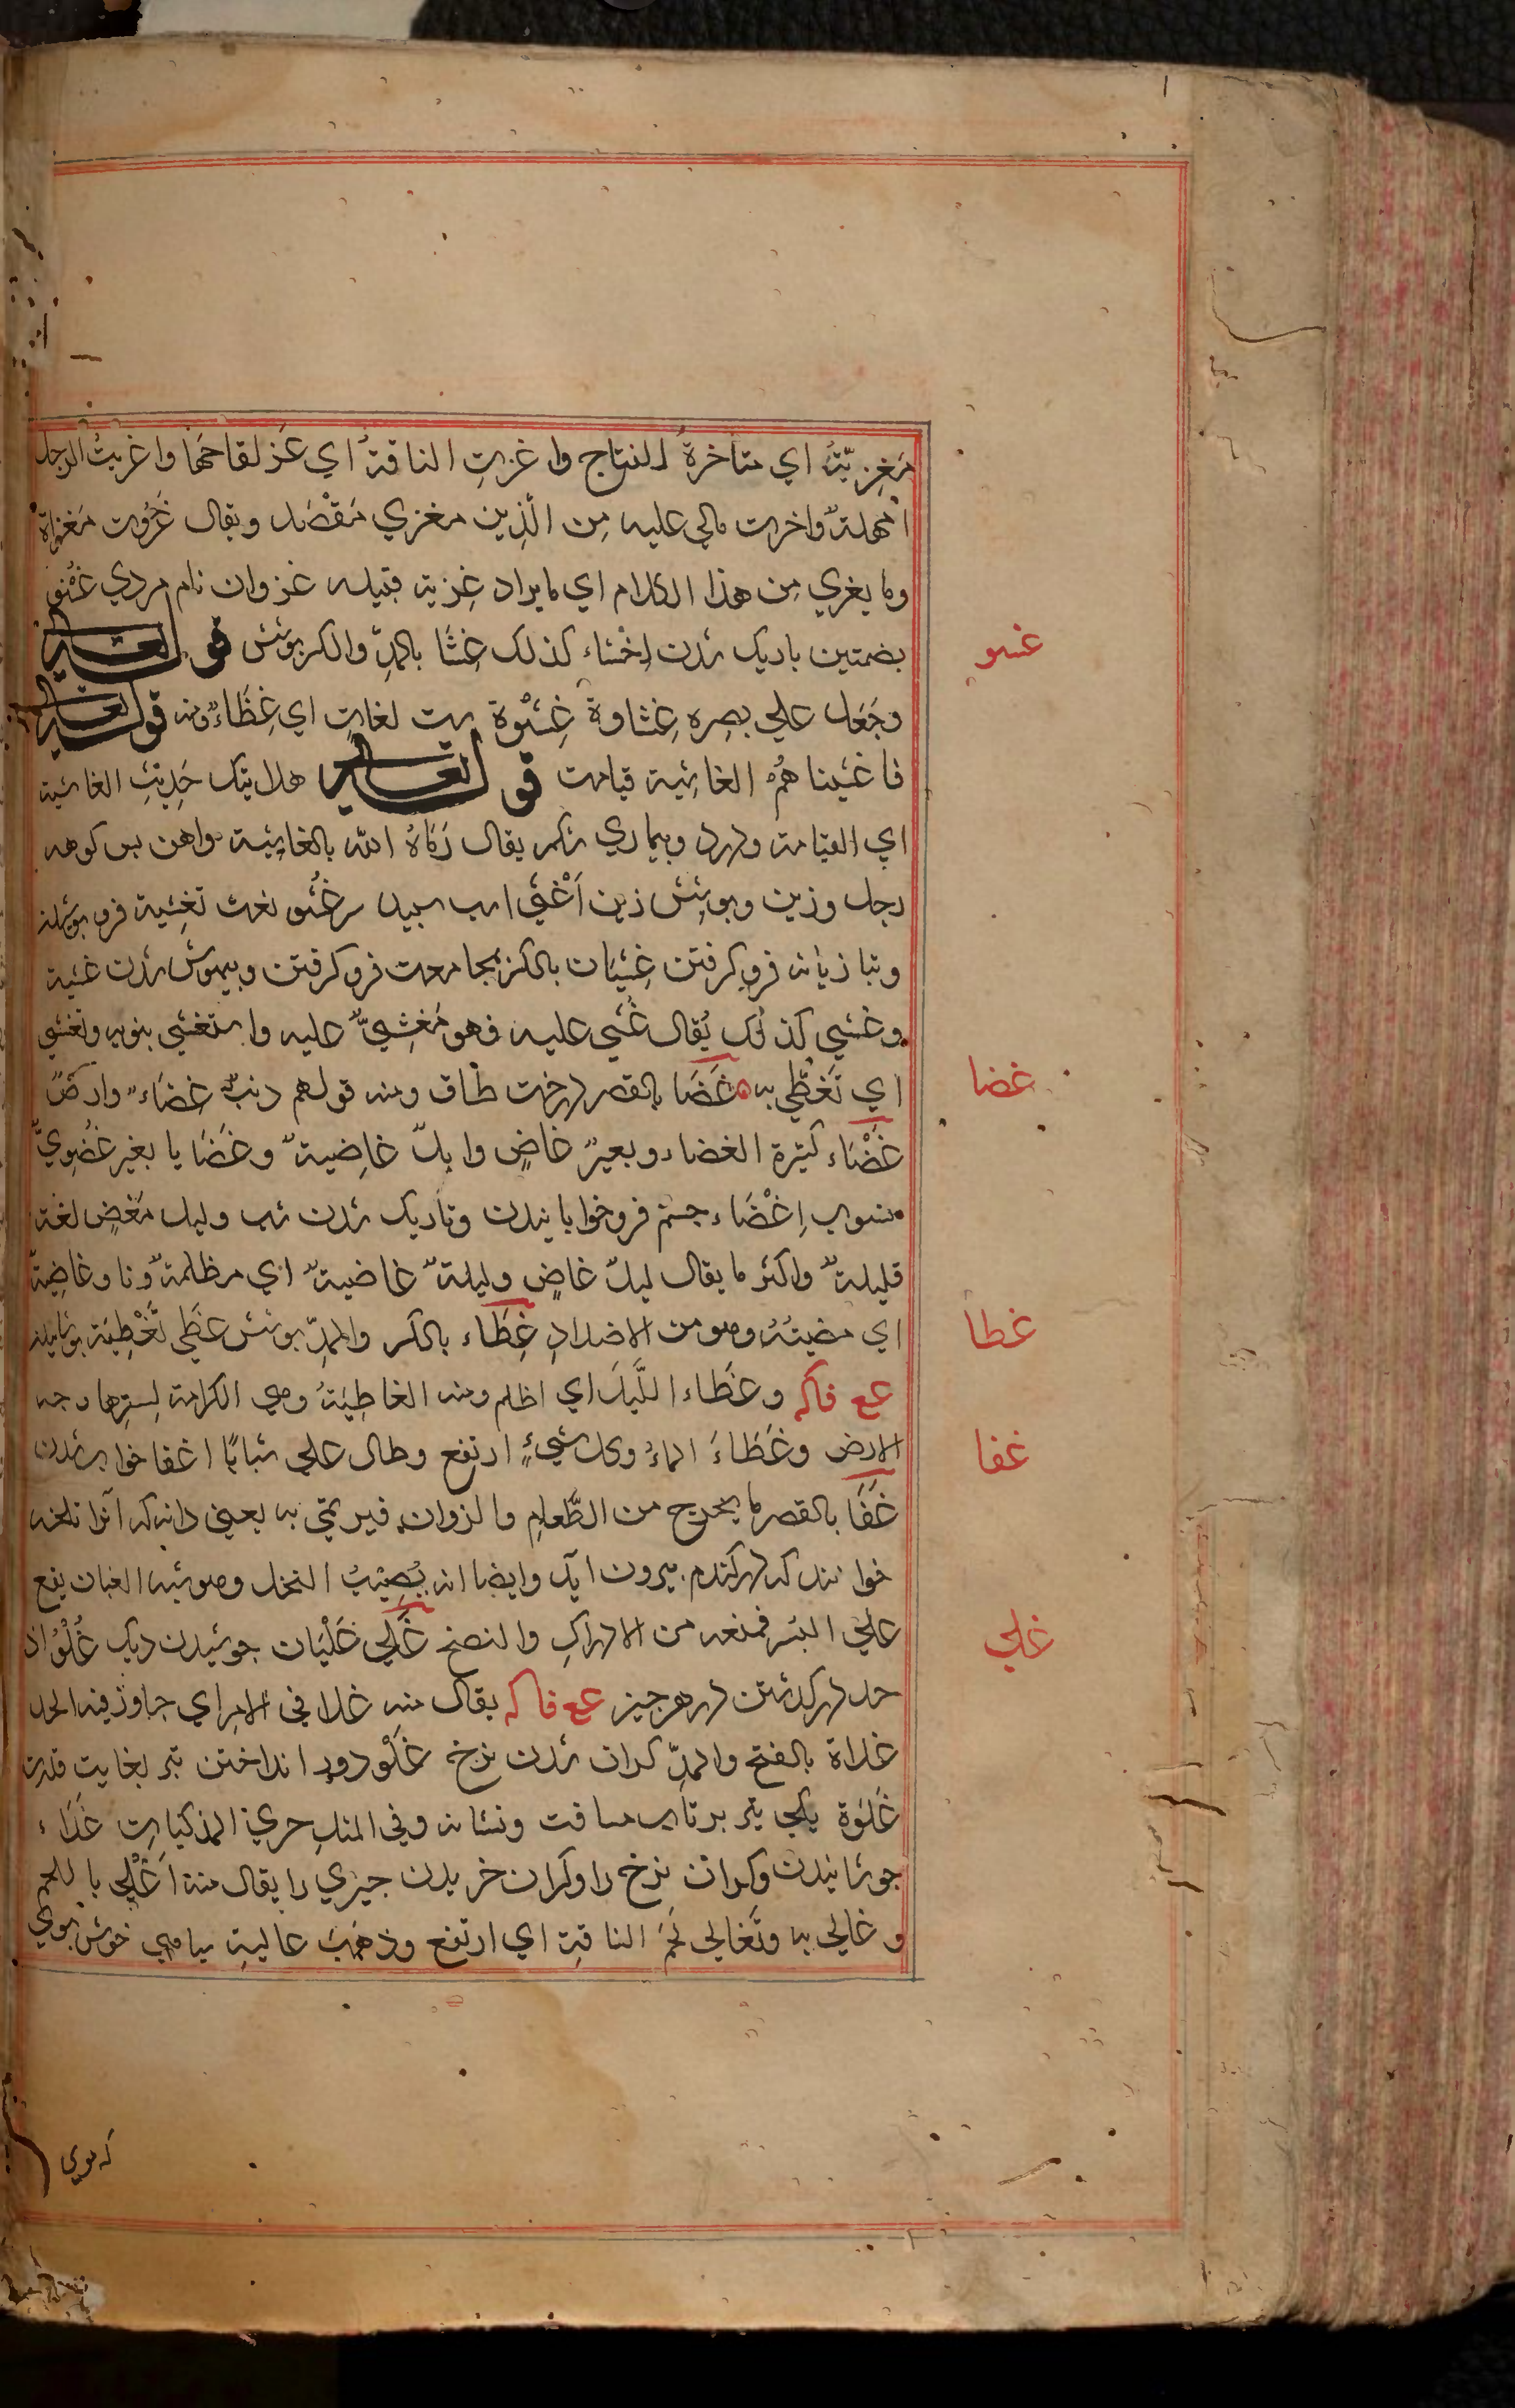 مُغزِيّةٌ اي متاخرة النتاج واغزتِ الناقةُ اي عَزَ لقاحَها واغزيتُ الرجل
امهلتهُ واخرت مالي عليه مِن الّذِين مغزي مَقْصَد ويقال غَزَوت مَغزاة
وما يغزي مِن هذا الكلام اي ما يراد غِزية قبيله غزوان نام مردي غُشُو
غشو
بضمتين باريك شدن اِغْشاء كذلك غِشَا بالمدّ والكسر پوشش قوله تعالى
وجَعَل علي بصرِه غِشاوة غِشْوة يت لغاتٍ اي غِطَاءٌ ومنه قوله تعالى
فاغشيناهُمْ الغاشِية قيامت قوله تعالى هل اتيك حَدِيثُ الغاشية
اي القيامة ودرد وبيماري شكم يقال رَمَاهُ الله بالغاشِية واهن پس كوهه
رجل وزين وپوشِش زين اَغْشَي اسپ سپيد سر غُشُو نعت تغشية فرو پوشيدن
وتبازيانه فرو كرفتن غِشيَان بالكسر مجامعت فرو كرفتن وبيهوش شدن غشية
وغشيي كذلك يُقال غُشي عليه فهو مَغشِيٌّ عليه واستغشي بثوبه وتغشي
اي تَغَطَّي به غَضَا بالقصر درخت طاق ومنه قولهم ذئبٌ غضَاء وارضٌ
غضا
غَضْيَاء كثيرة الغضاء وبعيرٌ غاضٍ وابلٌ غاضِيةٌ وغَضَايا بغير غُضَوِيٌّ
منسوب اِغْضَاء چشم فرو خوابانيدن وتاريك شدن شب وليل مُغضٍ لغة
قليلةٌ واكثر ما يقال ليلٌ غاضٍ وليلةٌ غاضيةٌ اي مظلمةٌ ونار غاضِيةٌ
اي مضيئةٌ وهو من الاضدادِ غِطَاء بالكسر والمدّ پوشش غَطي تَغْطِيَة پوشانيدن
غطا
عع فاكه وغَطَاء اللَّيلُ اي اظلم ومنه الغاطِيَةُ وهي الكرامة لِسترها وجه
الارض وغَطَاءَ الماءُ وكل شيءٍ ارتفع وطال علي شبابًا اغفا خواب شدن
غفا
غَفَا بالقصر ما يخرج من الطَّعامِ مالزوان فيرمي به يعني دانه كه آنرا تلخه
خوانند كه در كندم بيرون آيد وايضا انه يُصِيبُ النخل وهو شبه الغبار يقع
علي البُسرِ فمنعه من الادراكِ والنضج غَلي غَلْيَان جوشيدن ديك غُلُوّ از
غلي
حد در كذشتن در هر چيز عع فاكه يقال منه غلا في الامرِ اي جاوز فيه الحد
غلاة بالفتح والمدّ كران شدن نرخ غَلْو دور انداختن تير بغايت قدرت
غَلوَة يكي تير پرتاب مسافت ونشانه وفي المثلِ جري المذكياتِ غَلاَء
جوشانيدن وكران نرخ را وكران خريدن چيزي را يقال منه اَغْلي باللحم
وغالي به وتَغالي لَحْمُ الناقةِ اي ارتفع وذهَبَ غاليةِ سياهي خوش بوي
كه موي